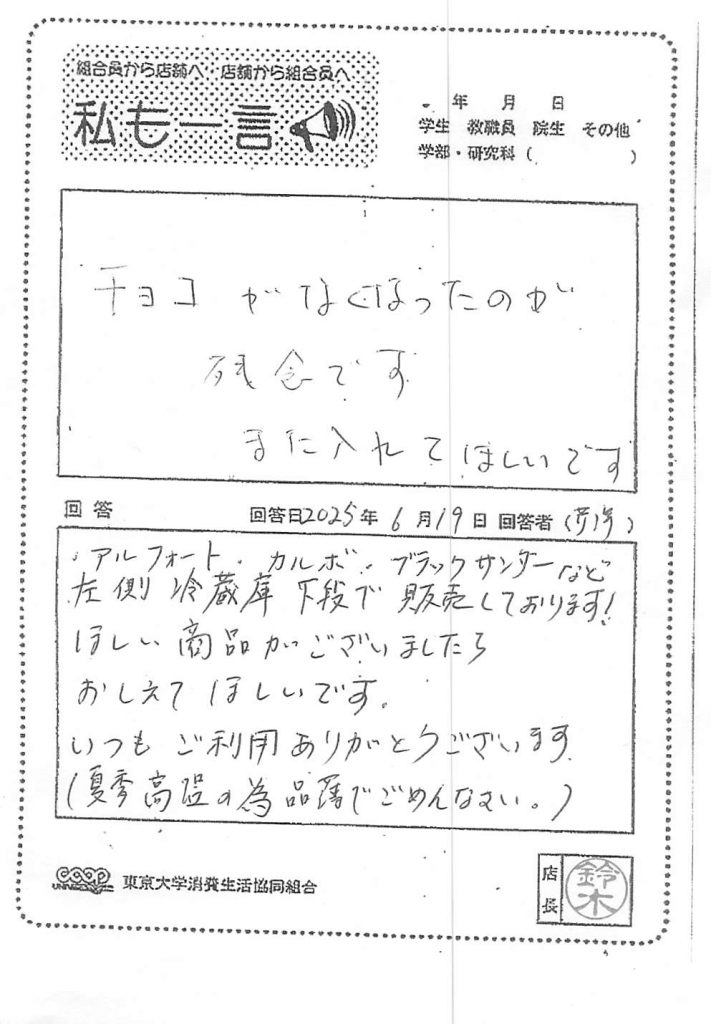 組合員から店舗へ 店舗から組合員へ
私も一言
年 月 日
学生 教職員 院生 その他
学部・研究科 ( )
チョコがなくなったのが
残念です
また入れてほしいです
回答 回答日2025年6月19日 回答者( )
・アルフォート・カルボ・ブラックサンダーなど
左側冷蔵庫下段で販売しております!
ほしい商品がございましたら
おしえてほしいです。
いつもご利用ありがとうございます
(夏季高温の為品薄でごめんなさい。)
coop
東京大学消費生活協同組合
店長
鈴木